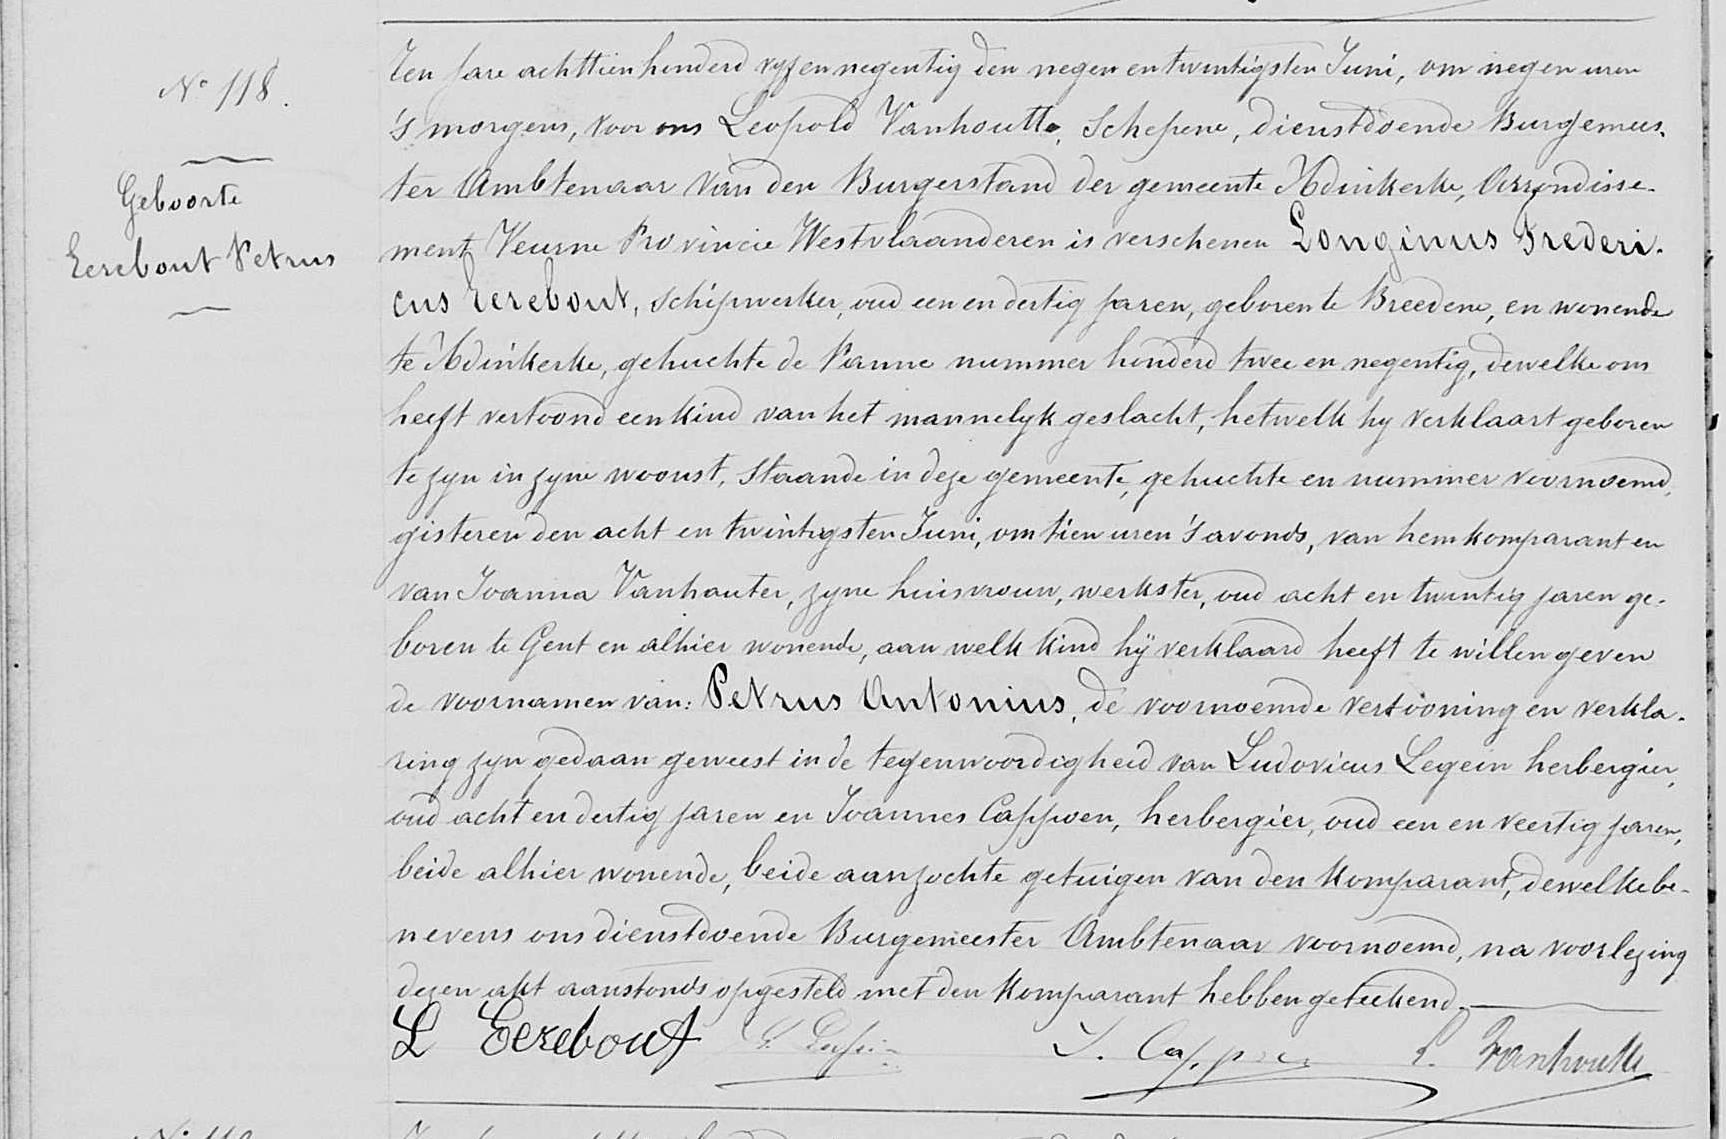 No 118.
Geboorte
Eerebout Petrus
Ten jare achttien honderd vyf en negentig den negen en twintigsten Juni, om negen uren
's morgens, voor ons Leopold Vanhoutte, Schepene, dienstdoende Burgemees-
ter Ambtenaar van den Burgerstand der gemeente Adinkerke, Arrondisse-
ment Veurne Provincie Westvlaanderen is verschenen Longinus Frederi-
cus Eerebout, schipwerker, oud een en dertig jaren, geboren te Breedene, en wonende
te Adinkerke, gehuchte de Panne nummer honderd twee en negentig, dewelke ons
heeft vertoond een kind van het mannelyk geslacht, hetwelk hy verklaart geboren
te zyn in zyne woonst, staande in deze gemeente, gehuchte en nummer voornoemd,
gisteren den acht en twintigsten Juni, om tien uren 's avonds, van hem komparant en
van Joanna Vanhauter, zyne huisvrouw, werkster, oud acht en twintig jaren ge-
boren te Gent en alhier wonende, aan welk kind hij verklaard heeft te willen geven
de voornamen van: Petrus Antonius, de voornoemde vertooning en verkla-
ring zyn gedaan geweest in de tegenwoordigheid van Ludovicus Legein herbergier,
oud acht en dertig jaren en Joannes Cappoen, herbergier, oud een en veertig jaren,
beide alhier wonende, beide aanzochte getuigen van den komparant, dewelke be-
nevens ons dienstdoende Burgemeester Ambtenaar voornoemd, na voorlezing
dezen akt aanstonds opgesteld met den komparant hebben geteekend.
L Eerebout L. Legein J. Cappoen L. Vanhoutte